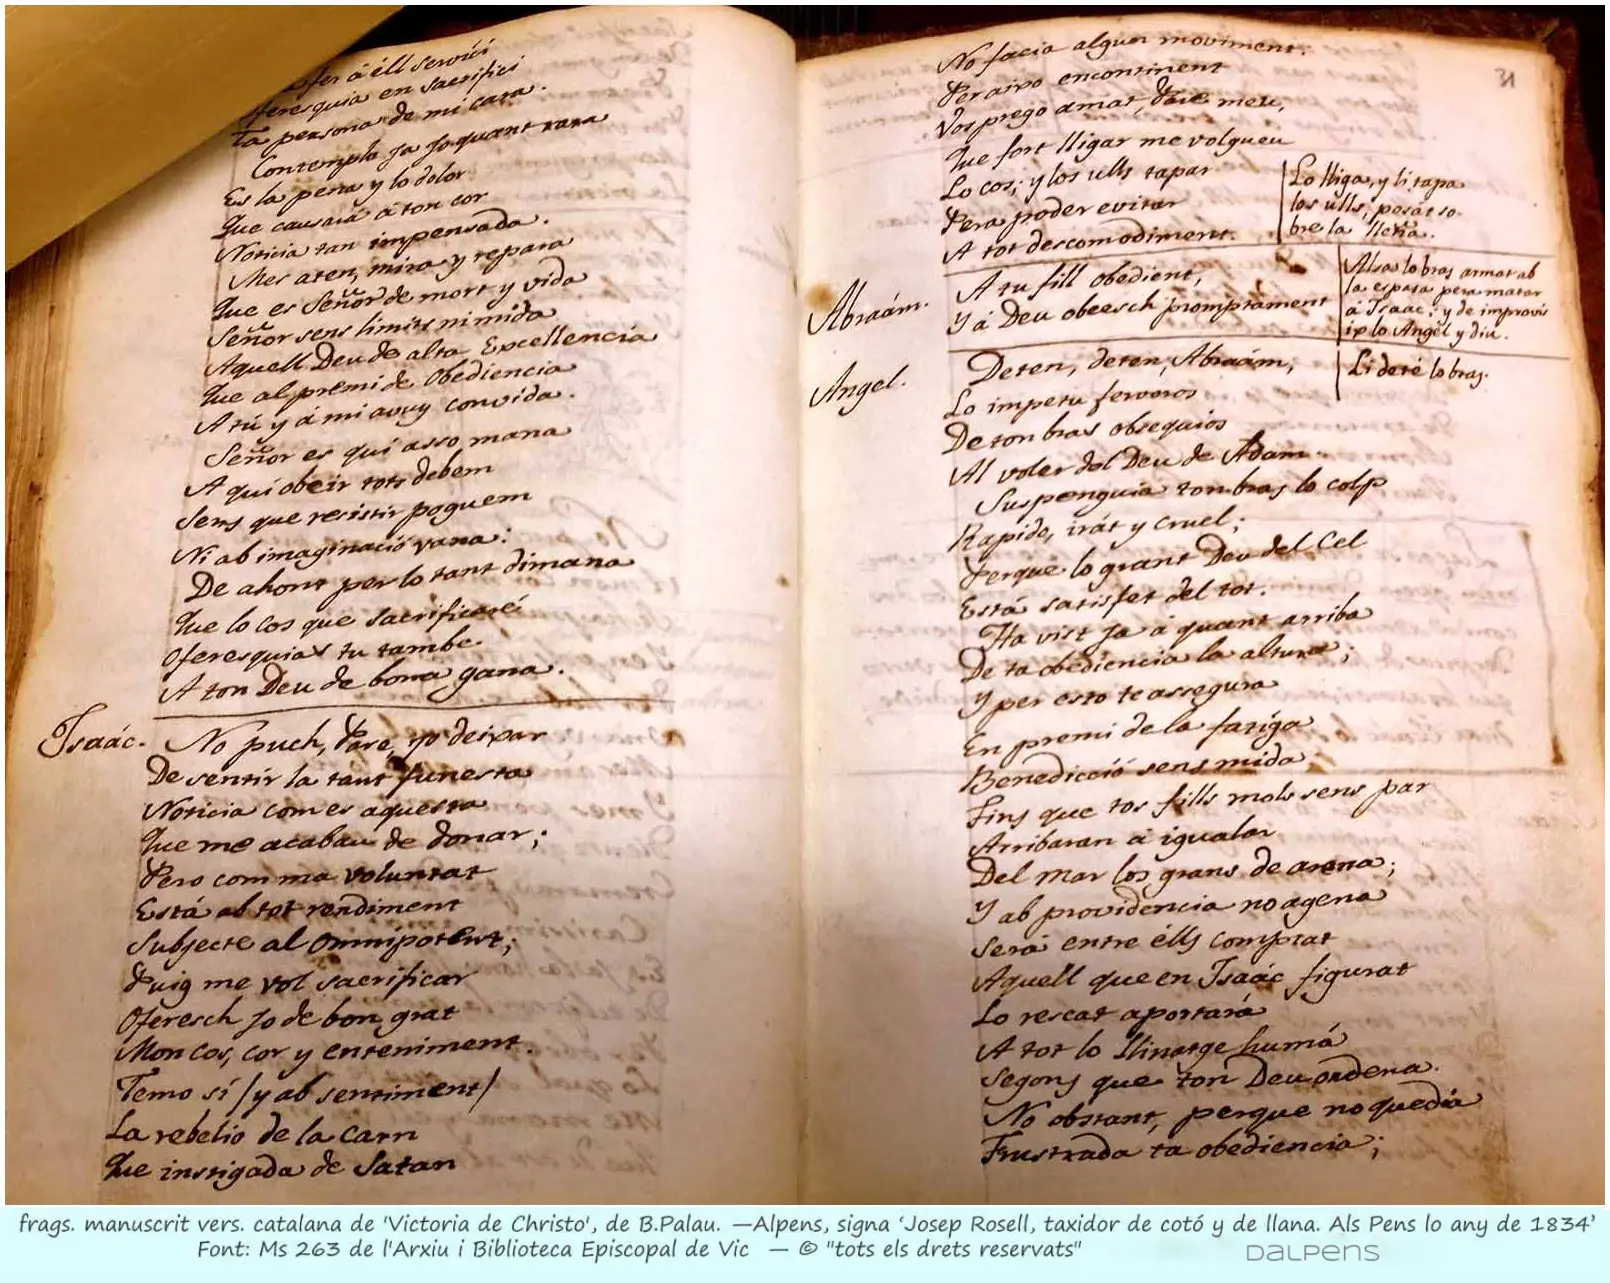 fer á éll servici
Oferesquia en sacrifici
Ta persona de mi cara.
Contemplo ja jo quant rara
Es la pena y lo dolor
Que causará á ton cor
Noticia tan impensada.
Mes aten, mira y repara
Que es Señor de mort y vida
Señor sens limits ni mida
Aquell Deu de alta Excellencia
Que al premi de Obediencia
A tú y á mi avuy convida.
Señor es qui asso mana
A qui obeir tots debem
Sens que resistir poguem
Ni ab imaginació vana:
De ahont per lo tant dimana
Que lo cos que sacrificaré
Oferesquias tu tambe
A ton Deu de bona gana.
Isaác. No puch, Pare, jo deixar
De sentir la tant funesta
Noticia com es aquesta
Que me acabau de donar;
Pero com ma voluntat
Está ab tot rendiment
Subjecte al Omnipotent;
Puig me vol sacrificar
Oferesch jo de bon grat
Mon cos, cor y enteniment.
Temo sí (y ab sentiment)
La rebelio de la carn
Que instigada de Satan
31
No facia algun moviment:
Per aixo encontinent
Vos prego amat, Pare meu,
Que fort lligar me volgueu
Lo cos; y los ulls tapar
Pera poder evitar
A tot descomodiment.
Lo lliga, y li tapa
los ulls, posat so-
bre la lleña.
Abraám. A tu fill obedient,
Y á Deu obeesch promptament
Alsa lo bras armat ab
la espasa pera matar
á Isaac; y de improvís
ix lo Angel y diu.
Angel. Deten, deten, Abraám,
Li deté lo bras.
Lo impetu fervoros
De ton bras obsequios
Al voler del Deu de Adam.
Suspenguia ton bras lo colp
Rapido, irát y cruel;
Perque lo grant Deu del Cel
Está satisfet del tot.
Ha vist ja á quant arriba
De ta obediencia la altura;
Y per esto te assegura
En premi de la fatiga
Benedicció sens mida
Fins que tos fills mols sens par
Arribaran á igualar
Del mar los grans de arena;
Y ab providencia no agena
Será entre élls comptat
Aquell que en Isaác figurat
Lo rescat aportará
A tot lo llinatge humá
Segons que ton Deu ordena.
No obstant, perque no quedia
Frustrada ta obediencia;
frags. manuscrit vers. catalana de 'Victoria de Christo', de B.Palau. —Alpens, signa ‘Josep Rosell, taxidor de cotó y de llana. Als Pens lo any de 1834’
Font: Ms 263 de l'Arxiu i Biblioteca Episcopal de Vic — © "tots els drets reservats" DALPENS